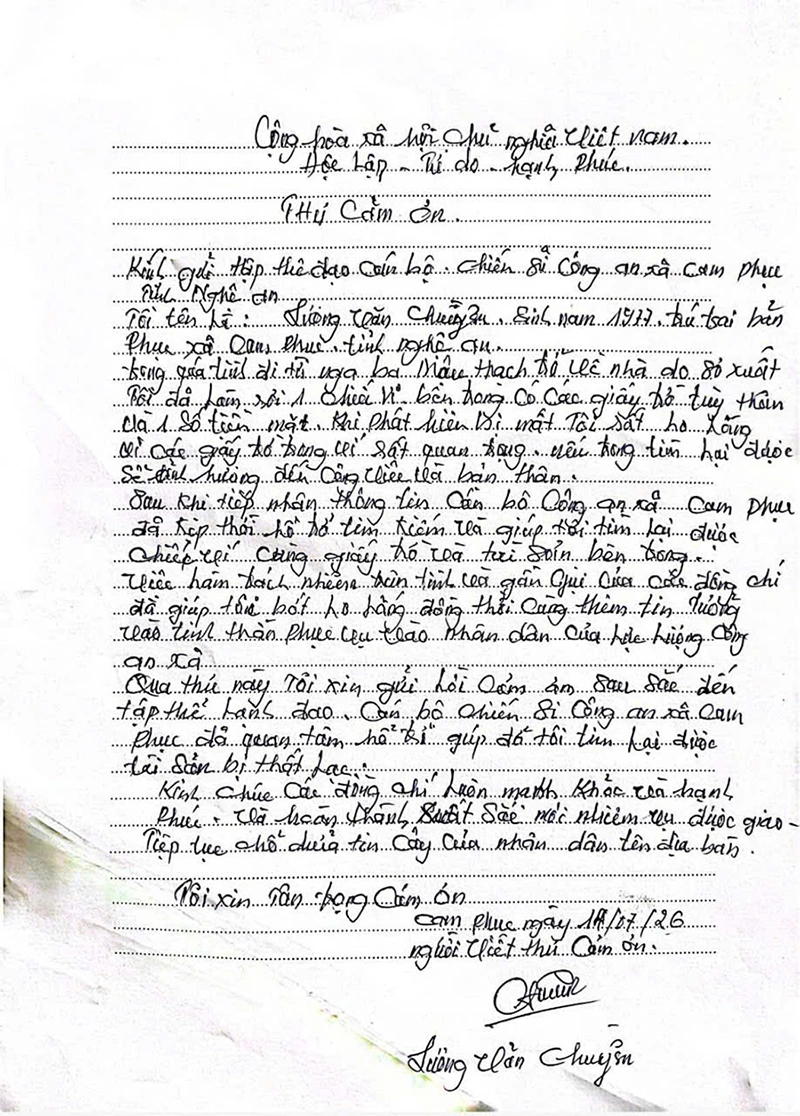 Cộng hòa xã hội chủ nghĩa Việt nam.
Độc lập - Tự do - hạnh phúc.
Thư Cảm ơn.
Kính gửi tập thể đạo cán bộ. chiến sĩ Công an xã cam phục
Tỉnh Nghệ an
Tôi tên là: Lương Văn Chuyền. Sinh năm 1977. trú tại bản
Phục xã Cam phục. tỉnh nghệ an.
trong quá trình đi từ ngã ba Mậu thạch trở về nhà do sơ xuất
Tôi đã làm rơi 1 chiếc ví. bên trong có các giấy tờ tùy thân
và 1 số tiền mặt. khi phát hiện bị mất Tôi rất lo lắng
vì các giấy tờ trong ví rất quan trọng. nếu không tìm lại được
sẽ ảnh hưởng đến công việc và bản thân.
Sau khi tiếp nhận thông tin cán bộ Công an xã Cam phục
đã kịp thời hỗ trợ tìm kiếm và giúp tôi tìm lại được
chiếc ví cùng giấy tờ và tài sản bên trong.
Việc làm trách nhiệm tận tình và gần gũi của các đồng chí
đã giúp tôi bớt lo lắng đồng thời càng thêm tin tưởng
vào tinh thần phục vụ vào nhân dân của lực lượng công
an xã
Qua thư này Tôi xin gửi lời cảm ơn sau sắc đến
tập thể lãnh đạo. Cán bộ chiến sĩ Công an xã Cam
phục đã quan tâm hỗ trợ giúp đỡ tôi tìm lại được
tài sản bị thất lạc.
Kính chúc các đồng chí luôn mạnh khỏe và hạnh
phúc. và hoàn thành xuất sắc mọi nhiệm vụ được giao -
Tiếp tục chỗ dựa tin cậy của nhân dân trên địa bàn.
Tôi xin Trân trọng Cảm ơn
cam phục ngày /07/26
người Viết thư Cảm ơn.
Lương Văn Chuyền